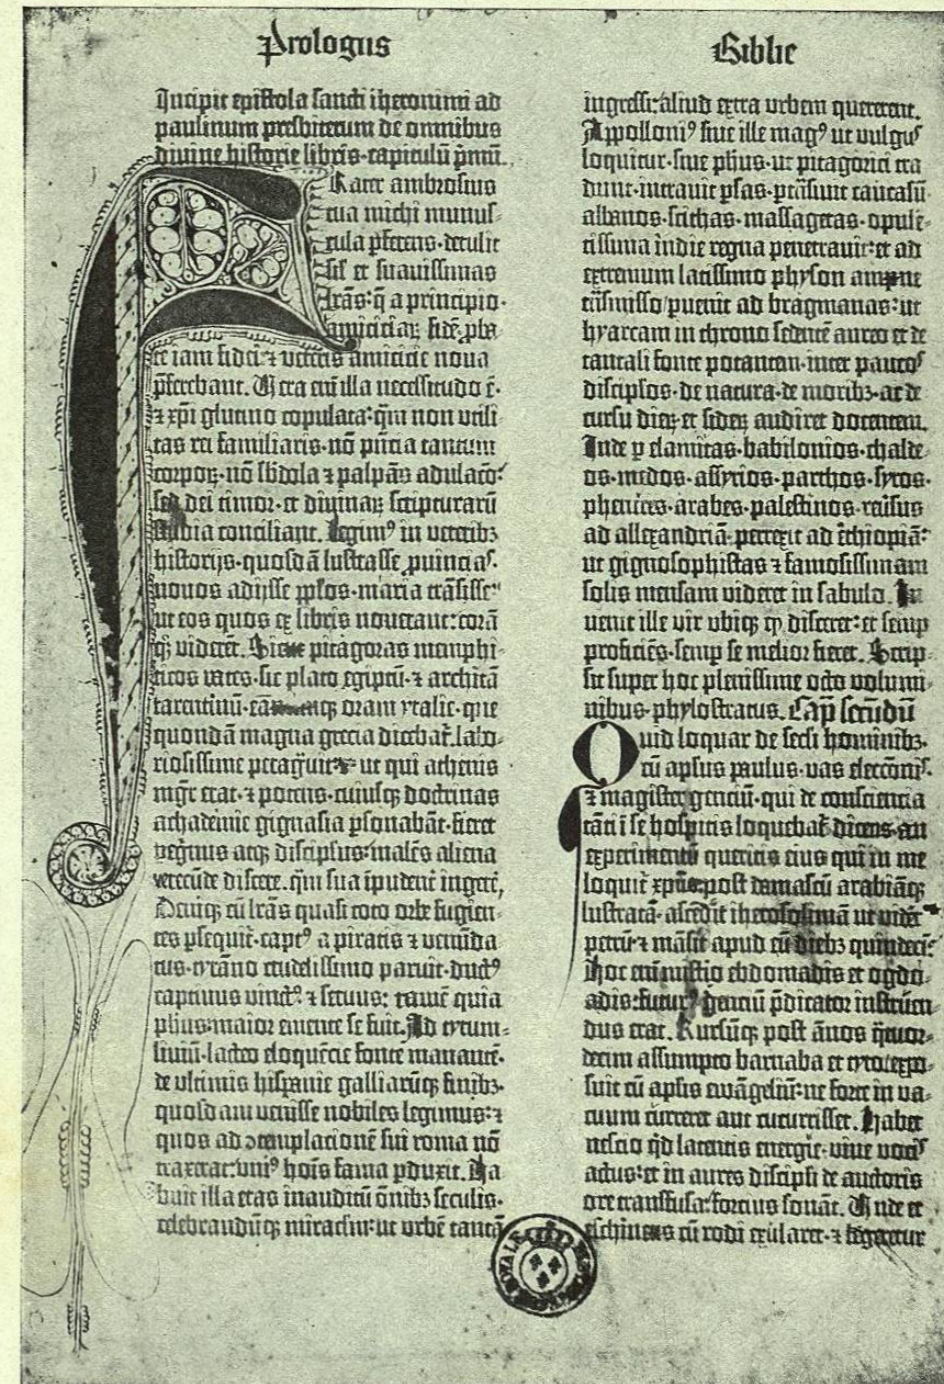 Prologus
Biblie
Incipit epistola sancti iheronimi ad
paulinum presbiterum de omnibus
divine historie libris·capitulū p̄mū.
Frater ambrosius
tua michi munus-
cula p̄ferens·detulit
sil' et suauissimas
lr̄as:q̄ a principio
amiciciaꝝ fidē ꝓba-
te iam fidei ⁊ veteris amicicie noua
p̄ferebant. Vera eni illa necessitudo ē·
⁊ xp̄i glutino copulata:q̄m non vtili-
tas rei familiaris·nō p̄ntia tantum
corpoꝝ·nō sbdola ⁊ palpās adulacō·
sed dei timor·et diuinaꝝ scripturarū
studia conciliant. Legimꝰ in veteribꝫ
historijs·quosdā lustrasse ꝓuincias·
nouos adijsse ppl̓os·maria trāsisse·
ut eos quos ex libris nouerant:corā
qꝫ viderēt. Sicut pitagoras memphi-
ticos vates·sic plato egiptū·⁊ architā
tarentinū·eāndemqꝫ oram ytalie·que
quondā magna grecia dicebat̄·labo-
riosissime peragũit·⁊ ut qui athenis
mgr̄ erat·⁊ potens·cuiusqꝫ doctrinas
achademie gignasia ꝑsonabāt·fieret
peg̓nus atqꝫ discipl̓us:malēs aliena
verecūde discere·q̄m sua īpudent̓ ingere͛·
Deniqꝫ cū lr̄as quasi toto orbe fugien-
tes ꝑsequit̄·captꝰ a piratis ⁊ venūda-
tus·tyrāno crudelissimo paruit·ductꝰ
captiuus vinctꝰ ⁊ seruus: tamē quia
ph̓us·maior emente se fuit. Ad tytum-
liuiū·lacteo eloquēcie fonte manantē·
de vltimis hispanie galliarūqꝫ finibꝫ·
quosdam venisse nobiles legimus:⁊
quos ad ɔtemplacionē sui roma nō
traxerat:vniꝰ hoīs fama ꝑduxit. Ha-
buit illa etas inauditū ōnibꝫ seculis·
celebrandūqꝫ miraclm̄:ut vrbē tantā
ingressi:aliud extra vrbem quererent.
Appolloniꝰ siue ille magꝰ ut vulgus
loquitur·siue ph̓us·ut pitagorici tra-
dunt·intrauit ꝑsas·ptrāsiuit caucasū
albanos·scithas·massagetas·opulē-
tissima indie regna penetrauit:et ad
extremum latissimo physon amne
trāsmisso ꝑuenit ad bragmanas:ut
hyarcam in throno sedentē aureo et de
tantali fonte potantem·inter paucos
discipl̓os·de natura·de moribꝫ·ac de
cursu dieꝝ et sideꝝ audiret docentem.
Inde ꝑ elamitas·babilonios·chalde-
os·medos·assyrios·parthos·syros·
phenices·arabes·palestinos·reūsus
ad allexandriā·perrexit ad ethiopiā:
ut gignosophistas ⁊ famosissimam
solis mensam videret in sabulo. In-
uenit ille vir vbiqꝫ qđ disceret:et semꝑ
proficiēs·semꝑ se melior fieret. Scrip-
sit super hoc plenissime octo volumi-
nibus·phylostratus. Cap̄ secundū
Quid loquar de secl̓i hominibꝫ·
cū apl̓us paulus·vas elecc̄onis·
⁊ magister genciū·qui de consciencia
tāti ī se hospitis loquebat̄ dicens·an
experimentū queritis eius qui in me
loquit̄ xp̄us·post damascū arabiāqꝫ
lustratā·ascēdit iherosolimā ut videt͛
petrū·⁊ māsit apud eū diebꝫ quindecī·
Hoc eni misterio ebdomadis et ogdo-
adis·futurꝰ genciū p̄dicator instruen-
dus erat. Rursūqꝫ post ānos q̄tuor-
decim assumpto barnaba et tyto·expo-
suit cū apl̓is ewāgeliū:ne forte in va-
cuum curreret aut cucurrisset. Habet
nescio qđ latentis energie·viue vocis
actus:et in aures discipl̓i de auctoris
ore transfusa·forcius sonat. Vnde et
eschines cū rodi exularet·⁊ legeretur